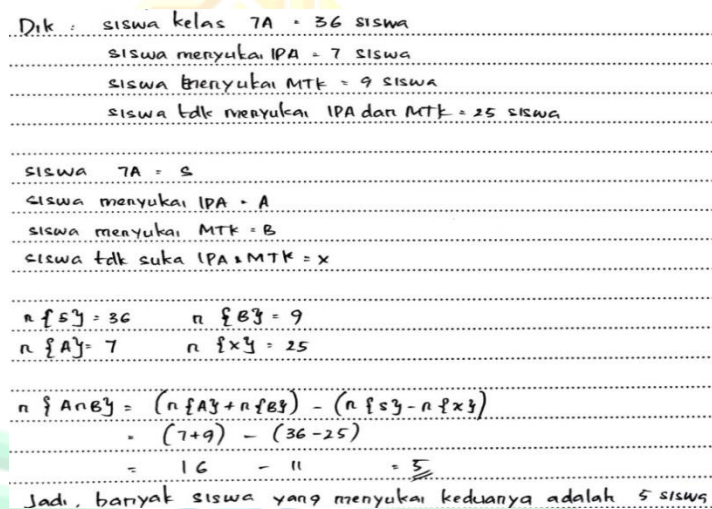 Dik : siswa kelas 7A = 36 siswa
siswa menyukai IPA = 7 siswa
siswa menyukai MTK = 9 siswa
siswa tdk menyukai IPA dan MTK = 25 siswa
siswa 7A = S
siswa menyukai IPA = A
siswa menyukai MTK = B
siswa tdk suka IPA & MTK = x
n {S} = 36 n {B} = 9
n {A} = 7 n {x} = 25
n {A∩B} = (n {A} + n {B}) - (n {S} - n {x})
= (7+9) - (36-25)
= 16 - 11 = 5
Jadi, banyak siswa yang menyukai keduanya adalah 5 siswa